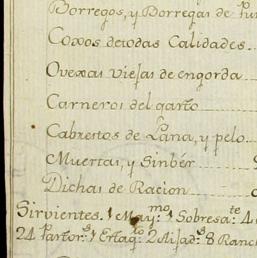 Borregos, y Borregas de
Coxos de todas Calidades
Ovexas viejas de engorda
Carneros del gasto
Cabrestos de Lana, y pelo
Muertas, y Sinber
Dichas de Racion
Sirvientes. 1 Maymo. 1 Sobresate. 4
24 Pastors. 1 2 8 Ranc